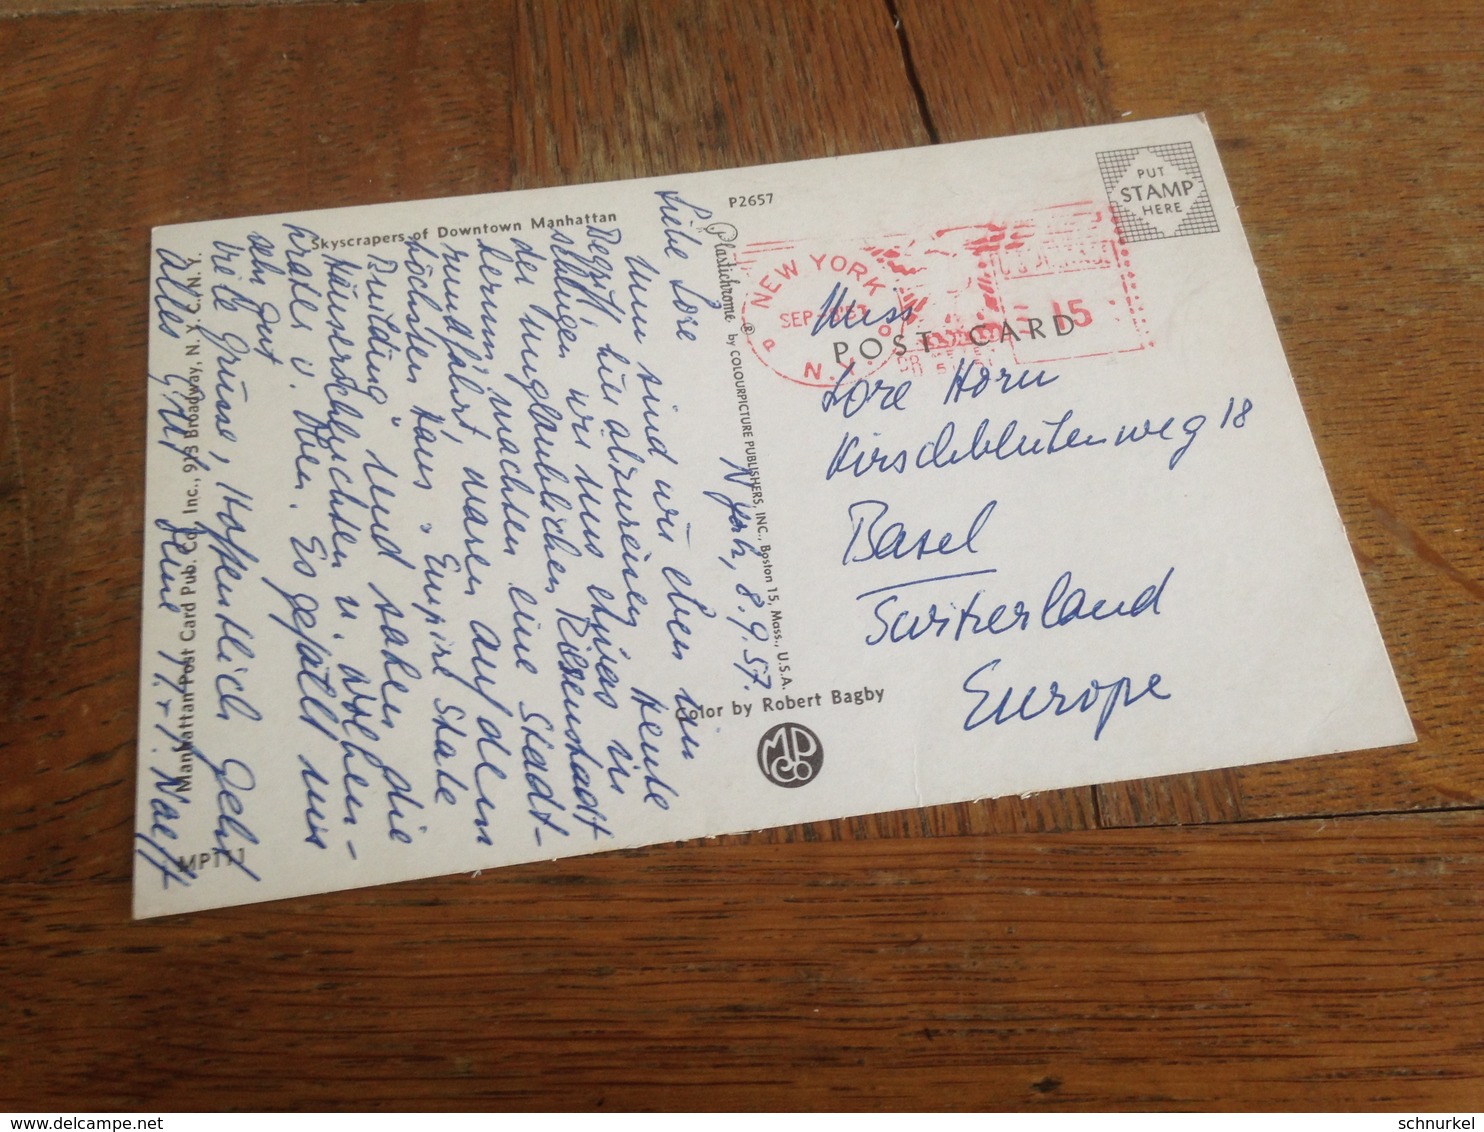 P2657
PUT
STAMP
HERE
Skyscrapers of Downtown Manhattan
Plastichrome ® by COLOURPICTURE PUBLISHERS, INC., Boston 15, Mass., U.S.A.
Color by Robert Bagby
Manhattan Post Card Pub. Co., Inc., 925 Broadway, N. Y. C., N. Y.
MP111
POST CARD
NEW YORK
SEP
N.Y.
15
N York, 8.9.57.
Liebe Lore
Nun sind wir eben im
Begriff, hier abzureisen. Heute
sehen wir uns etwas in
der unglaublichen Riesenstadt
herum, machten eine Stadt-
rundfahrt, waren auf dem
höchsten Haus "Empire State
Building" und sahen die
Häuserschluchten u. Wolken-
kratzer v. oben. Es gefällt uns
sehr gut
Viele Grüsse, hoffentlich geht
alles gut. Deine
Miss
Lore Horn
Kirschblütenweg 18
Basel
Switzerland
Europe
schnurkel